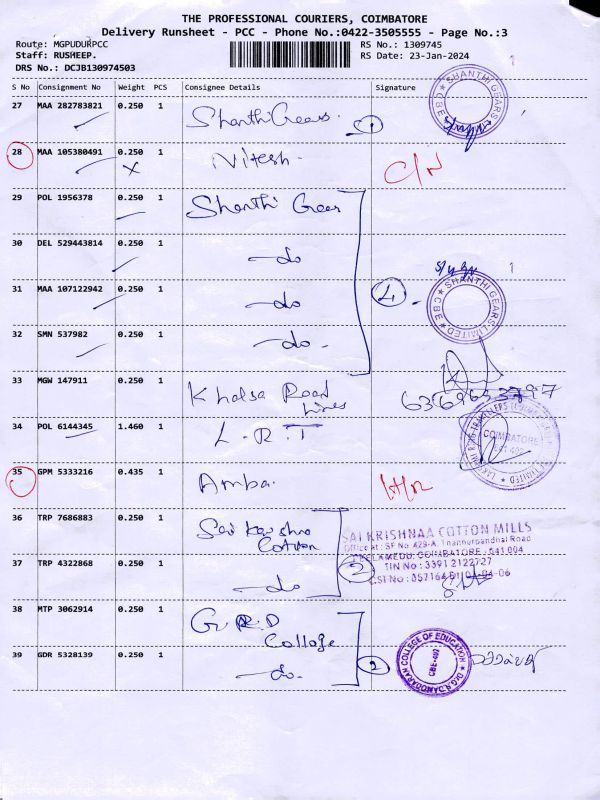 THE PROFESSIONAL COURIERS, COIMBATORE
Delivery Runsheet - PCC - Phone No.:0422-3505555 - Page No.:3
Route: MGPUDURPCC RS No.: 1309745
Staff: RUSHEEP. RS Date: 23-Jan-2024
DRS No.: DCJB130974503
S No Consignment No Weight PCS Consignee Details Signature
27 MAA 282783821 0.250 1 Shanthi Gears. 1 SHANTHI GEARS CBE 1
28 MAA 105380491 0.250 1 Nitesh. C/N
29 POL 1956378 0.250 1 Shanthi Gear
30 DEL 529443814 0.250 1 do 1
31 MAA 107122942 0.250 1 do 4 SHANTHI GEARS LIMITED CBE
32 SMN 537982 0.250 1 do.
33 MGW 147911 0.250 1 Khalsa Road Lines
34 POL 6144345 1.460 1 L.R.T COIMBATORE
35 GPM 5333216 0.435 1 Amba.
36 TRP 7686883 0.250 1 Sai Krishna Cotton
SAI KRISHNAA COTTON MILLS
Office at: SF No 429-A, Road
COIMBATORE - 641 004
37 TRP 4322868 0.250 1 do 2 TIN No : 3391 2122727
38 MTP 3062914 0.250 1 G.R.D College
39 GDR 5328139 0.250 1 do. 2 Dr.G.R.DAMODARAN COLLEGE OF EDUCATION